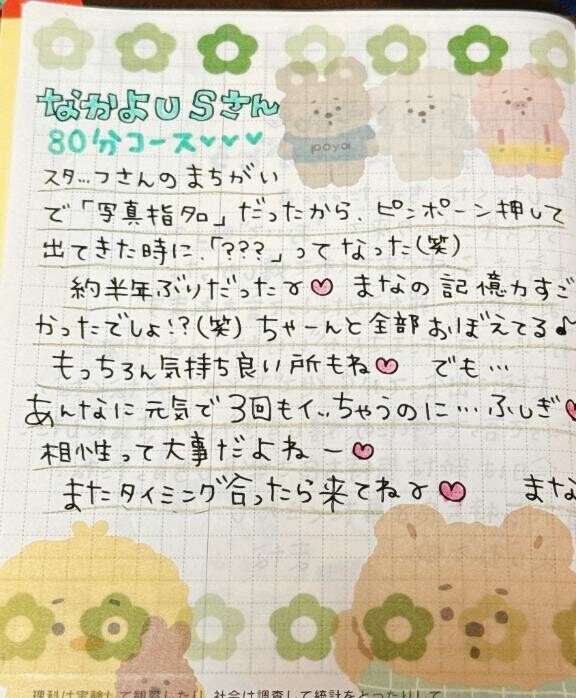 なかよUSさん
poya
80分コース♥♥♥
スタッフさんのまちがい
で「写真指名」だったから、ピンポーン押して
出てきた時に、「???」ってなった(笑)
約半年ぶりだったγ♡ まなの記憶力すご
かったでしょ!?(笑) ちゃーんと全部おぼえてる♪
もっちろん気持ち良い所もね♡ でも…
あんなに元気で3回もイッちゃうのに…ふしぎ♡
相性って大事だよねー♡
またタイミング合ったら来てねγ♡ まな
理科は実験して観察したり、社会は調査して統計をとったりして